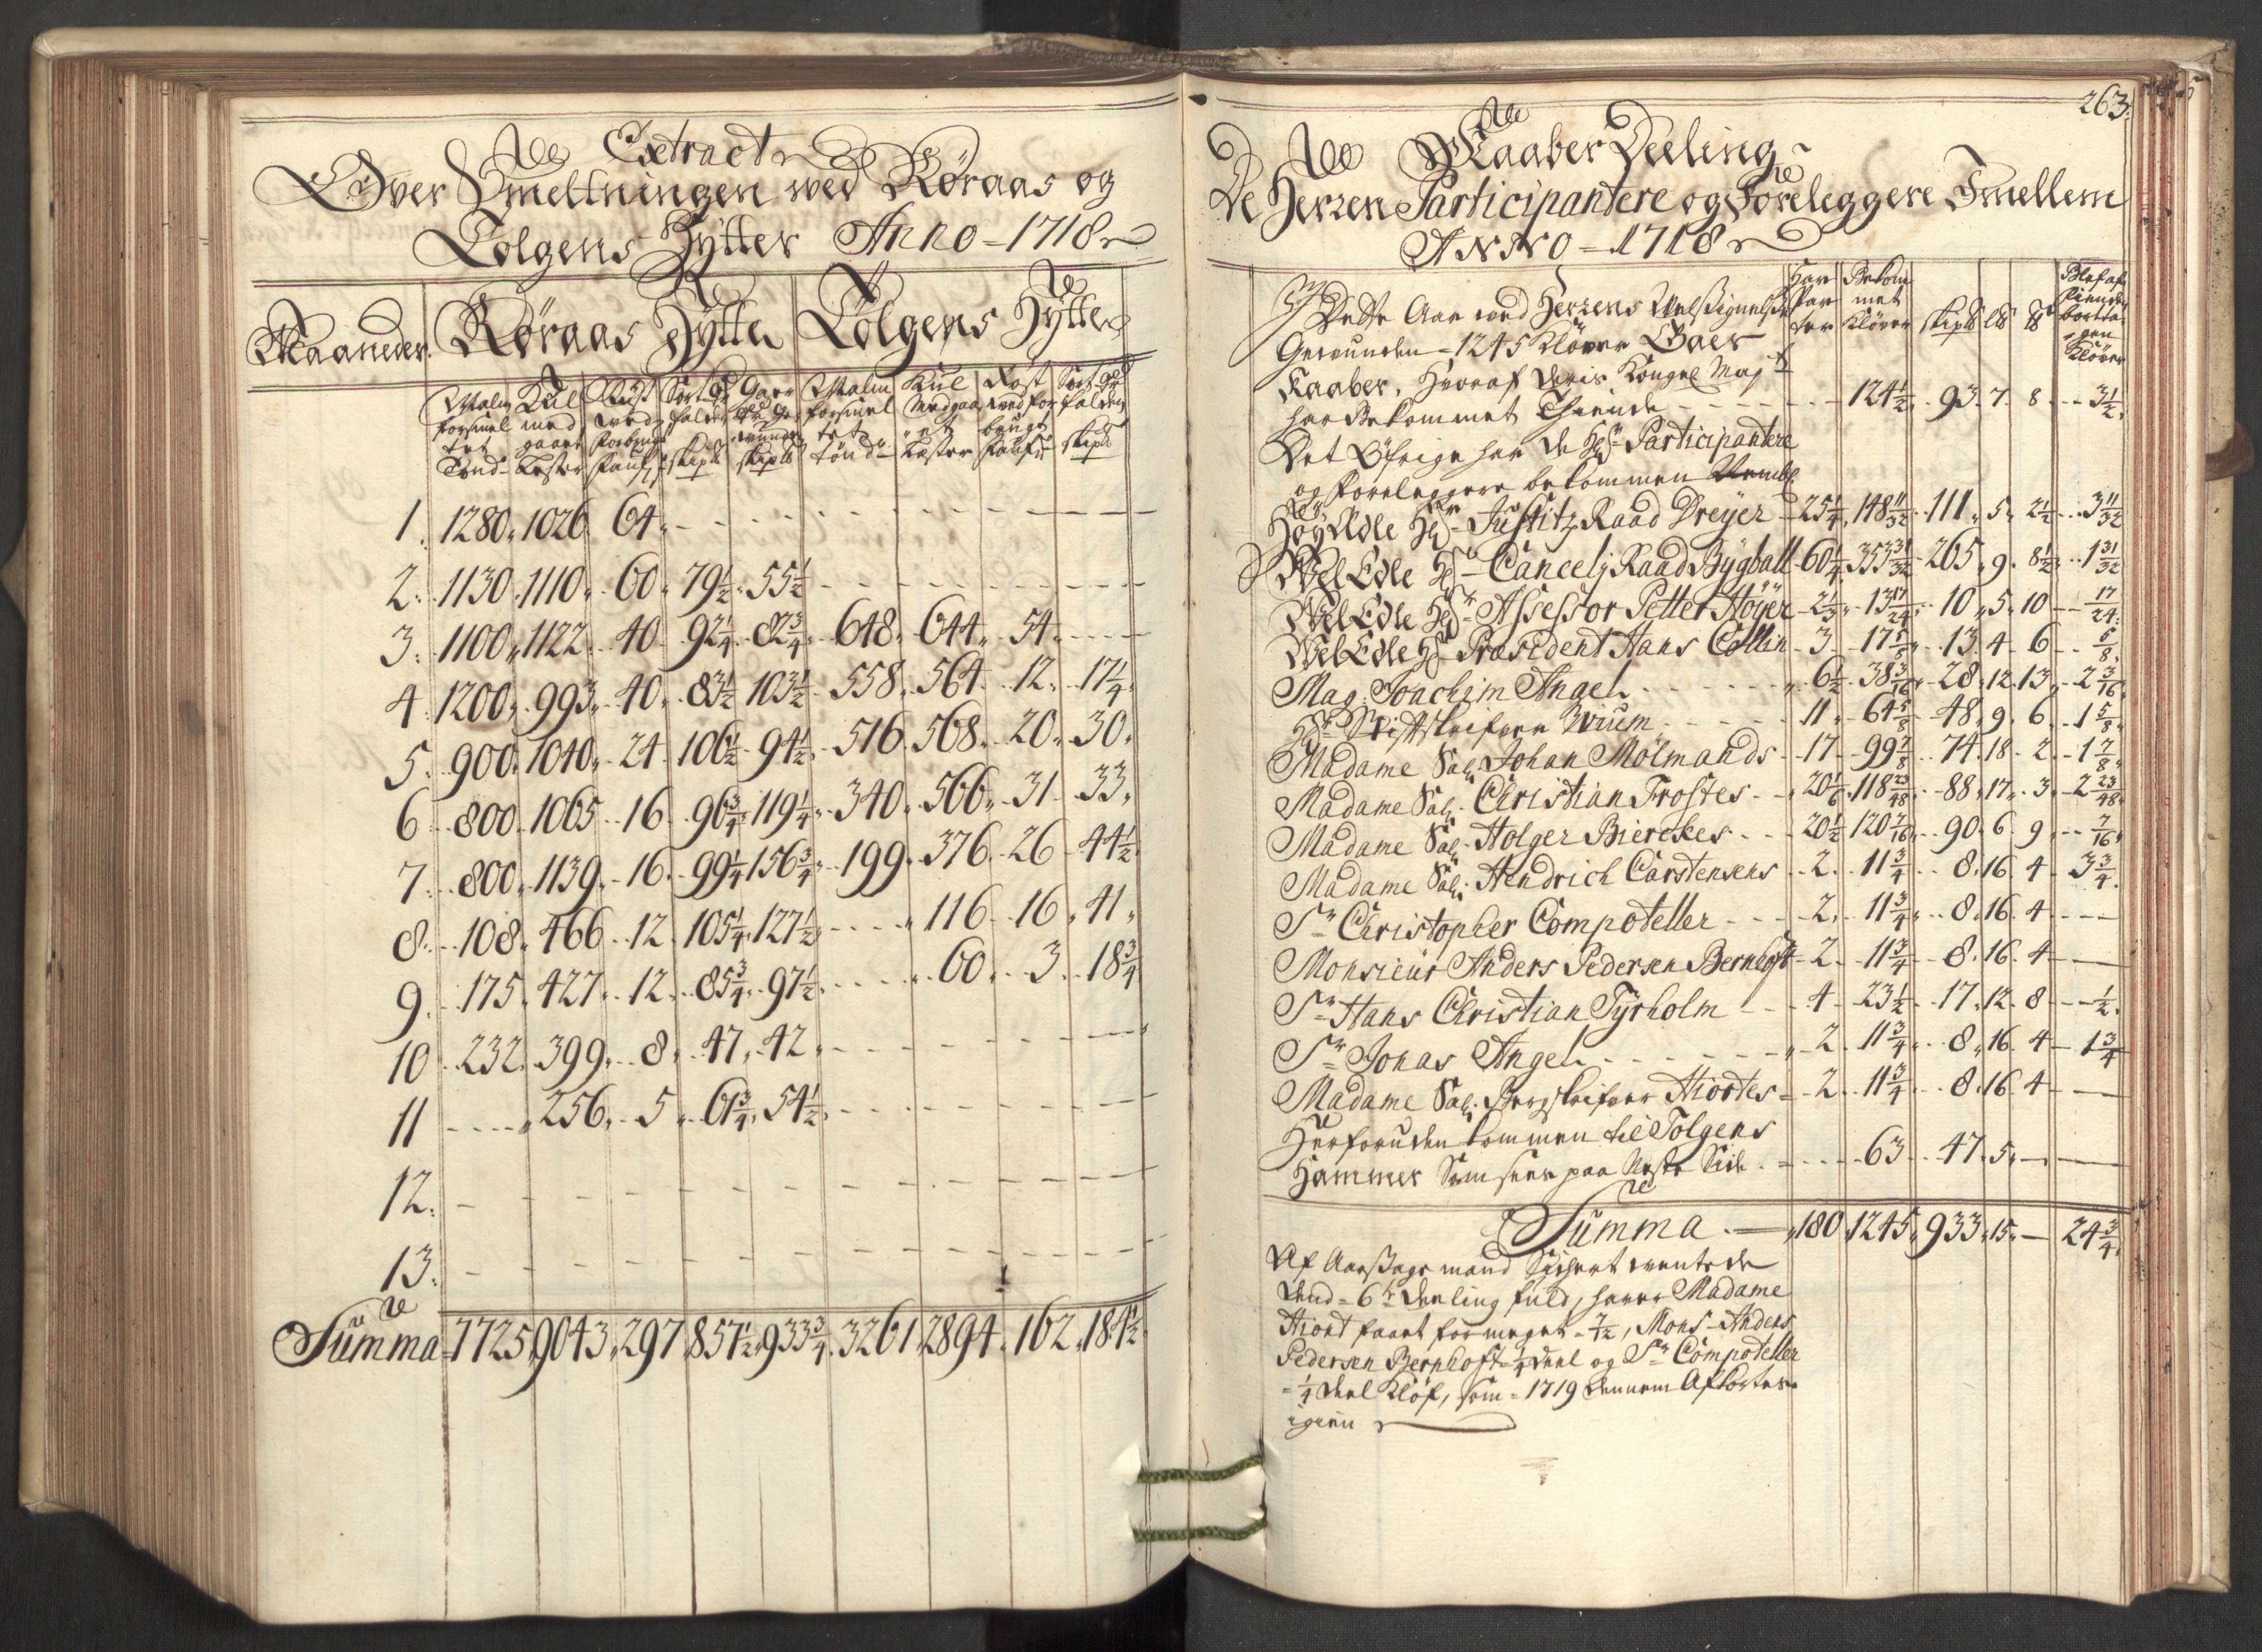 Extract
Over Smeltningen ved Røraas og
Tolgens Hÿtter Anno - 1718
Maaneder. Røraas Hÿtte Tolgens Hÿtte
Malm Kul Røst Sort Gaar Malm Kul Røst Sort
forsmel med ved falden forsmel Medgaa ved for falden
tet gaaet forbrugt wunden tet et brugt
Tønd Læster faufn skip℔ skip℔ tønd Læster faufn skip℔
1. 1280. 1026. 64. - - - - - -
2. 1130. 1110. 60. 79½. 55½ - - - -
3. 1100. 1122. 40. 92¼. 82¾. 648. 644. 54. -
4. 1200. 993. 40. 83½. 103½. 558. 564. 12. 17¼.
5. 900. 1040. 24. 106½. 94½. 516. 568. 20. 30.
6. 800. 1065. 16. 96¾. 119¼. 340. 566. 31. 33.
7. 800. 1139. 16. 99¼. 156¾. 199. 376. 26. 44½.
8. 108. 466. 12. 105¼. 127½. - 116. 16. 41.
9. 175. 427. 12. 85¾. 97½. - 60. 3. 18¾
10. 232. 399. 8. 47. 42. - - - -
11. - 256. 5. 61¾. 54½. - - - -
12. - - - - - - - - -
13. - - - - - - - - -
Summa 7725. 9043. 297. 857½. 933¾. 3261. 2894. 162. 184½
263.
Kaaber Deeling
De Herren Participantere og Foreleggere Imellem
ANNO - 1718
Har Par ter Bekom met Kløver skip℔ L℔ ℔ bortta gen Kløver
Dette Aar ved Herrens Velsignelse
Gewunden - 1245 Kløver Gaer
Kaaber, Hvoraf Deris Kongel Maj
har Bekommet Thiende - - - 124½. 93. 7. 8. - 3½.
Det Øfrige har de Hr Participantere
og foreleggere bekommen
HøyÆdle Hr Justitz Raad Dreyer - 25¼. 148 11/32. 111. 5. 2½. 3 11/32
WelEdle Hr Cancelj Raad Bÿgball - 60¼. 353 31/32. 265. 9. 8½. 1 31/32
WelEdle Hr Assessor Petter Höÿer - 2⅓. 13 17/24. 10. 5. 10 - 17/24.
WelEdle Hr Præsident Hans Collin - 3 - 17⅝. 13. 4. 6 - ⅝.
Mag. Joachim Angel - - - 6½. 38 3/16. 28. 12. 13. 2 3/16.
Hr Stiftskrifver Wium - - - 11. 64⅝. 48. 9. 6. 1⅝.
Madame Sal. Johan Mølmands - 17 - 99⅞. 74. 18. 2. 1⅞.
Madame Sal. Christian Frostes - 20⅙. 118 23/48. 88. 17. 3. 2 23/48.
Madame Sal. Holger Bierekes - 20½. 120 7/16. 90. 6. 9. - 7/16.
Madame Sal. Hendrich Carstensens - 2. 11¾. 8. 16. 4 - 3¾.
Sr Christopher Compoteller - 2. 11¾. 8. 16. 4 - -
Monsieur Anders Pedersen Bernhoft - 2. 11¾. 8. 16. 4 - -
Sr Hans Christian Tÿrholm - 4 - 23½. 17. 12. 8 - ½.
Sr Jonas Angel - - - 2. 11¾. 8. 16. 4 - 1¾
Madame Sal. Bergskrifver Hiortes - 2. 11¾. 8. 16. 4 - -
Herforuden kommen til Tolgens
Hammer Som sees paa Neste Side - - 63. 47. 5. - -
Summa - 180. 1245. 933. 15. - 24¾.
Af Aarsags mand Sichert ventede
dend - 6te deeling fuld, haver Madame
Hiort faaet for meget - 7/12, Mons. Anders
Pedersen Bernhoft - ¼ deel og Sr Compoteller
- ¼ deel Kløf, som - 1719 dennem Afkortes
igien